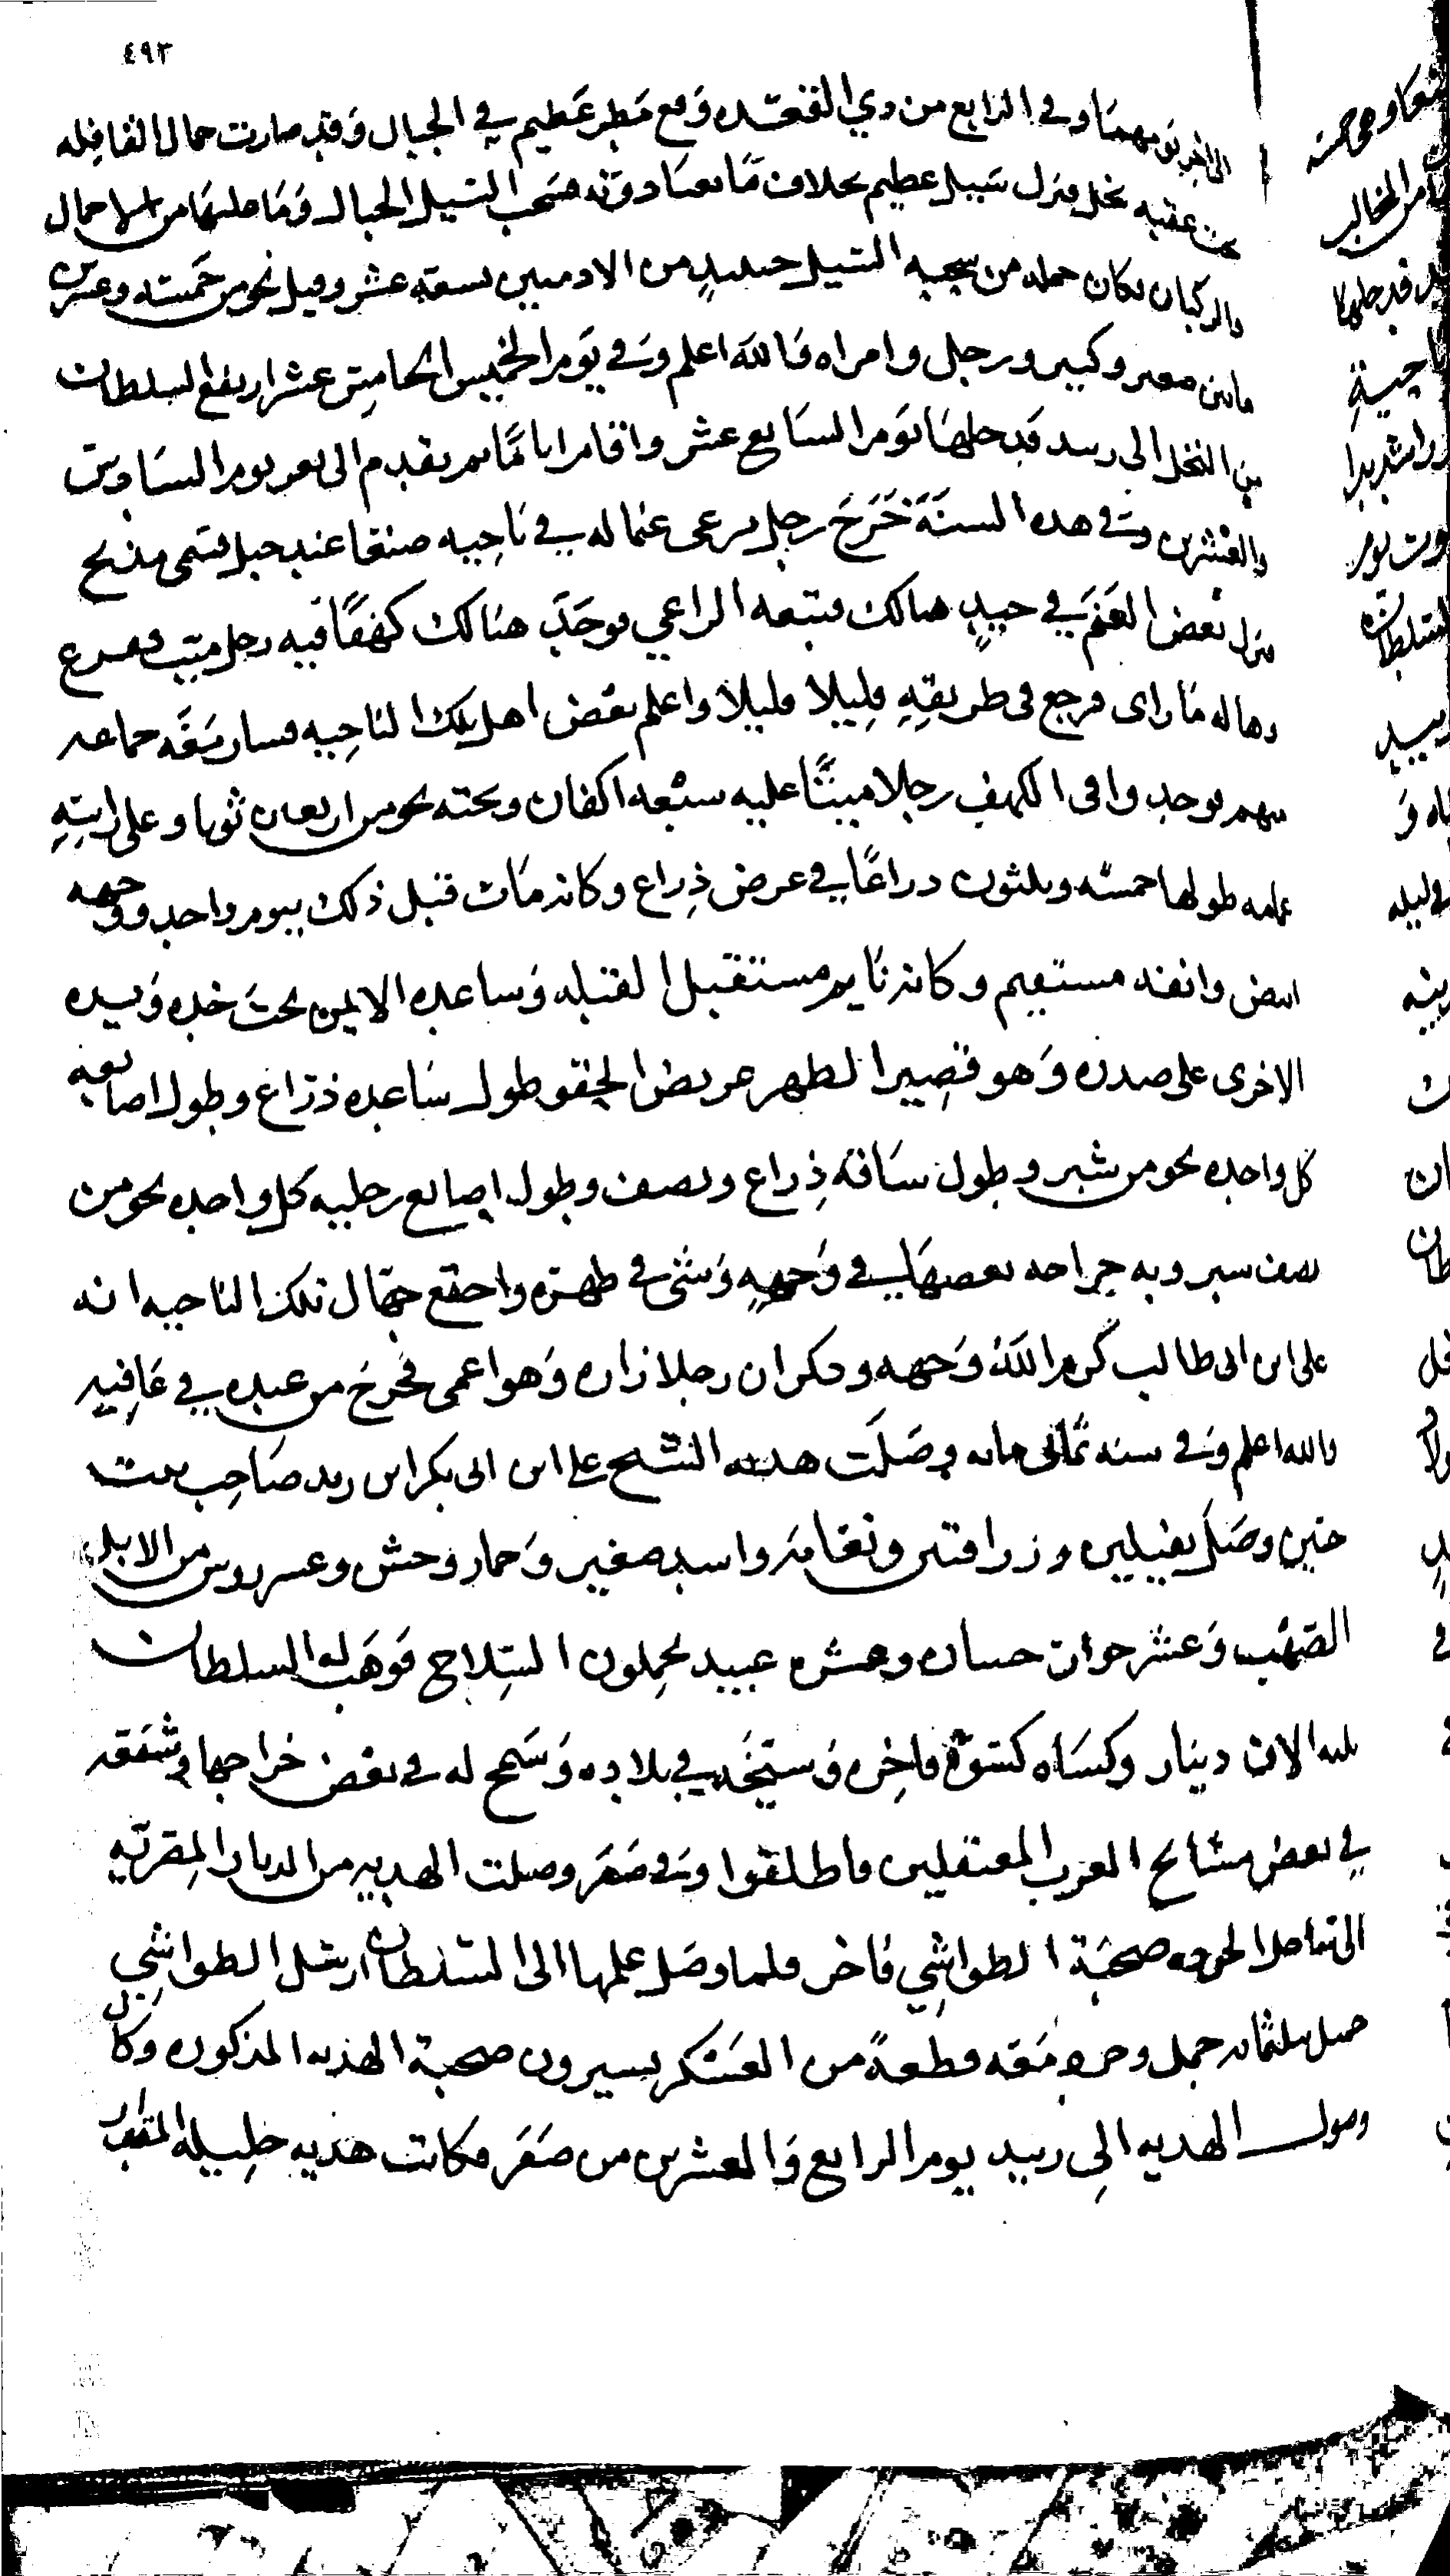 ٤٩٣
الى اخر يومهما وفي الرابع من ذي القعده وقع مطر عظيم في الجبال وقد صارت جمال القافله
تحت عقبه نخل فنزل سيل عظيم بخلاف ما يعتاد وانه صحب السيل الجمال وما عليها من الاحمال
والركبان فكان جمله من سحبه السيل حينيذ من الادميين تسعة عشر وقيل نحو من خمسه وعشرين
مابين صغير وكبير ورجل وامراه فالله اعلم وفي يوم الخميس الخامس عشر ارتفع السلطان
من النخل الى زبيد فدخلها يوم السابع عشر واقام اياما ثم تقدم الى تعز يوم السادس
والعشرين وفي هذه السنة خرج رجل يرعى غنما له في ناحيه صنعا عند جبل يسمى مذبح
فنزل بعض الغنم في حيد هنالك فتبعه الراعي فوجد هنالك كهفا فيه رجل ميت ففزع
وهاله ما راى فرجع في طريقه قليلا قليلا واعلم بعض اهل تلك الناحيه فسار معه جماعه
منهم فوجدوا في الكهف رجلا ميتا عليه سبعه اكفان وتحته نحو من اربعين ثوبا وعلى راسه
عمامه طولها خمسه وثلثون ذراعا في عرض ذراع وكانه مات قبل ذلك بيوم واحد ووجهه
ابيض وانفه مستقيم وكانه نايم مستقبل القبله وساعده الايمن تحت خده ويده
الاخرى على صدره وهو قصير الظهر عريض الحقو طول ساعده ذراع وطول اصابعه
كل واحده نحو من شبر وطول ساقه ذراع ونصف وطول اصابع رجليه كل واحده نحو من
نصف شبر وبه جراحه بعضها في وجهه وشي في ظهره واجتمع جهال تلك الناحيه انه
علي ابن ابي طالب كرم الله وجهه وذكر ان رجلا زاره وهو اعمى فخرج من عنده في عافيه
والله اعلم وفي سنه ثماني مايه وصلت هديه الشيخ علي ابن ابي بكر ابن صاحب بيت
حنين وصل بفيلين وزرافتين ونعامه واسد صغير وحمار وحش وعشر روس من الابل
الصهب وعشر جوار حسان وعشره عبيد يحملون السلاح فوهب له السلطان
ثلثه الاف دينار وكساه كسوة فاخره في بلاده وسمح له في بعض خراجها وشفعه
في بعض مشايخ العرب المعتقلين فاطلقوا وفي صفر وصلت الهديه من الديار المصريه
الى صحبة الطواشي فاخر فلما وصل علمها الى السلطان ارسل الطواشي
جمل وخرج معه قطعة من العسكر يسيرون صحبة الهديه المذكوره وكان
وصول الهديه الى زبيد يوم الرابع والعشرين من صفر فكانت هديه جليله المقدار